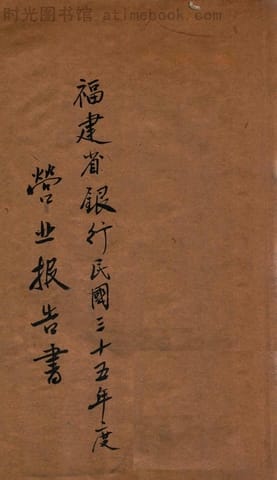 时光图书馆 atimebook.com
福建省銀行民國三十五年度
營业报告書